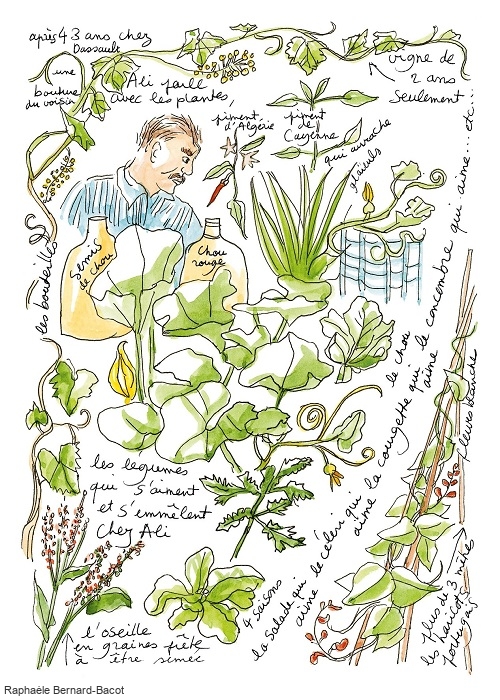 après 43 ans chez
Dassault
une
bouture
du voisin
Ali parle
avec les plantes,
vigne de
2 ans
seulement
piment
d'Algérie
piment
de
Cayenne
qui arrache
glaïeuls
les bouteilles
Semis
de chou
Chou
rouge
les légumes
qui s'aiment
et s'emmêlent
chez Ali
l'oseille
en graines prête
à être semée
4 saisons
la salade qui aime le céleri qui aime la courgette qui aime le concombre qui aime... etc...
le chou
fleurs blanches
plus de 3 mètres
les haricots
portugais
Raphaèle Bernard-Bacot